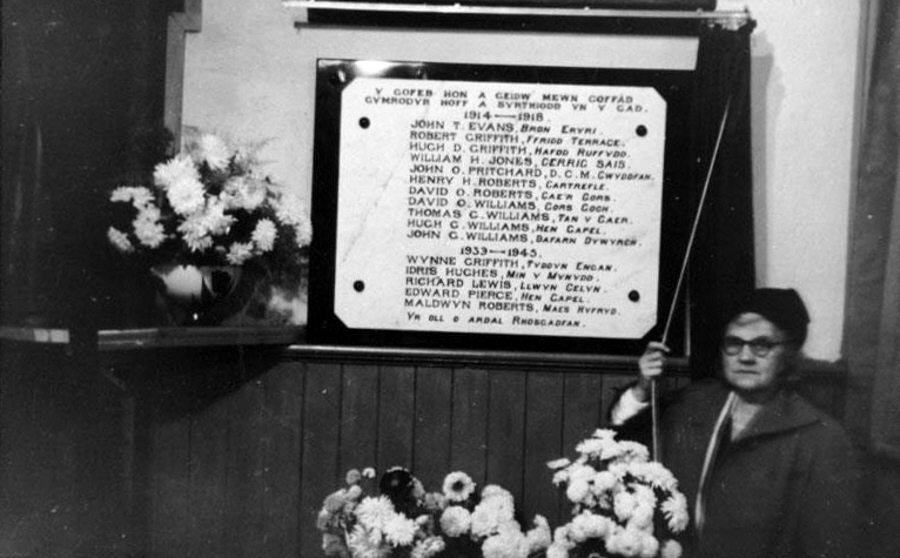 Y GOFEB HON A GEIDW MEWN COFFÂD
GYMRODYR HOFF A SYRTHIODD YN Y GAD.
1914—1918.
JOHN T. EVANS, BRON ERYRI.
ROBERT GRIFFITH, FFRIDD TERRACE.
HUGH D. GRIFFITH, HAFOD RUFFYDD.
WILLIAM H. JONES, CERRIG SAIS.
JOHN O. PRITCHARD, D.C.M. GWYDDFAN.
HENRY H. ROBERTS, CARTREFLE.
DAVID O. ROBERTS, CAE'R GORS.
DAVID O. WILLIAMS, GORS GOCH.
THOMAS G. WILLIAMS, TAN Y GAER.
HUGH G. WILLIAMS, HEN GAPEL.
JOHN G. WILLIAMS, DAFARN DYWYRCH.
1939—1945.
WYNNE GRIFFITH, TYDDYN ENGAN.
IDRIS HUGHES, MIN Y MYNYDD.
RICHARD LEWIS, LLWYN CELYN.
EDWARD PIERCE, HEN GAPEL.
MALDWYN ROBERTS, MAES HYFRYD.
YR OLL O ARDAL RHOSGADFAN.